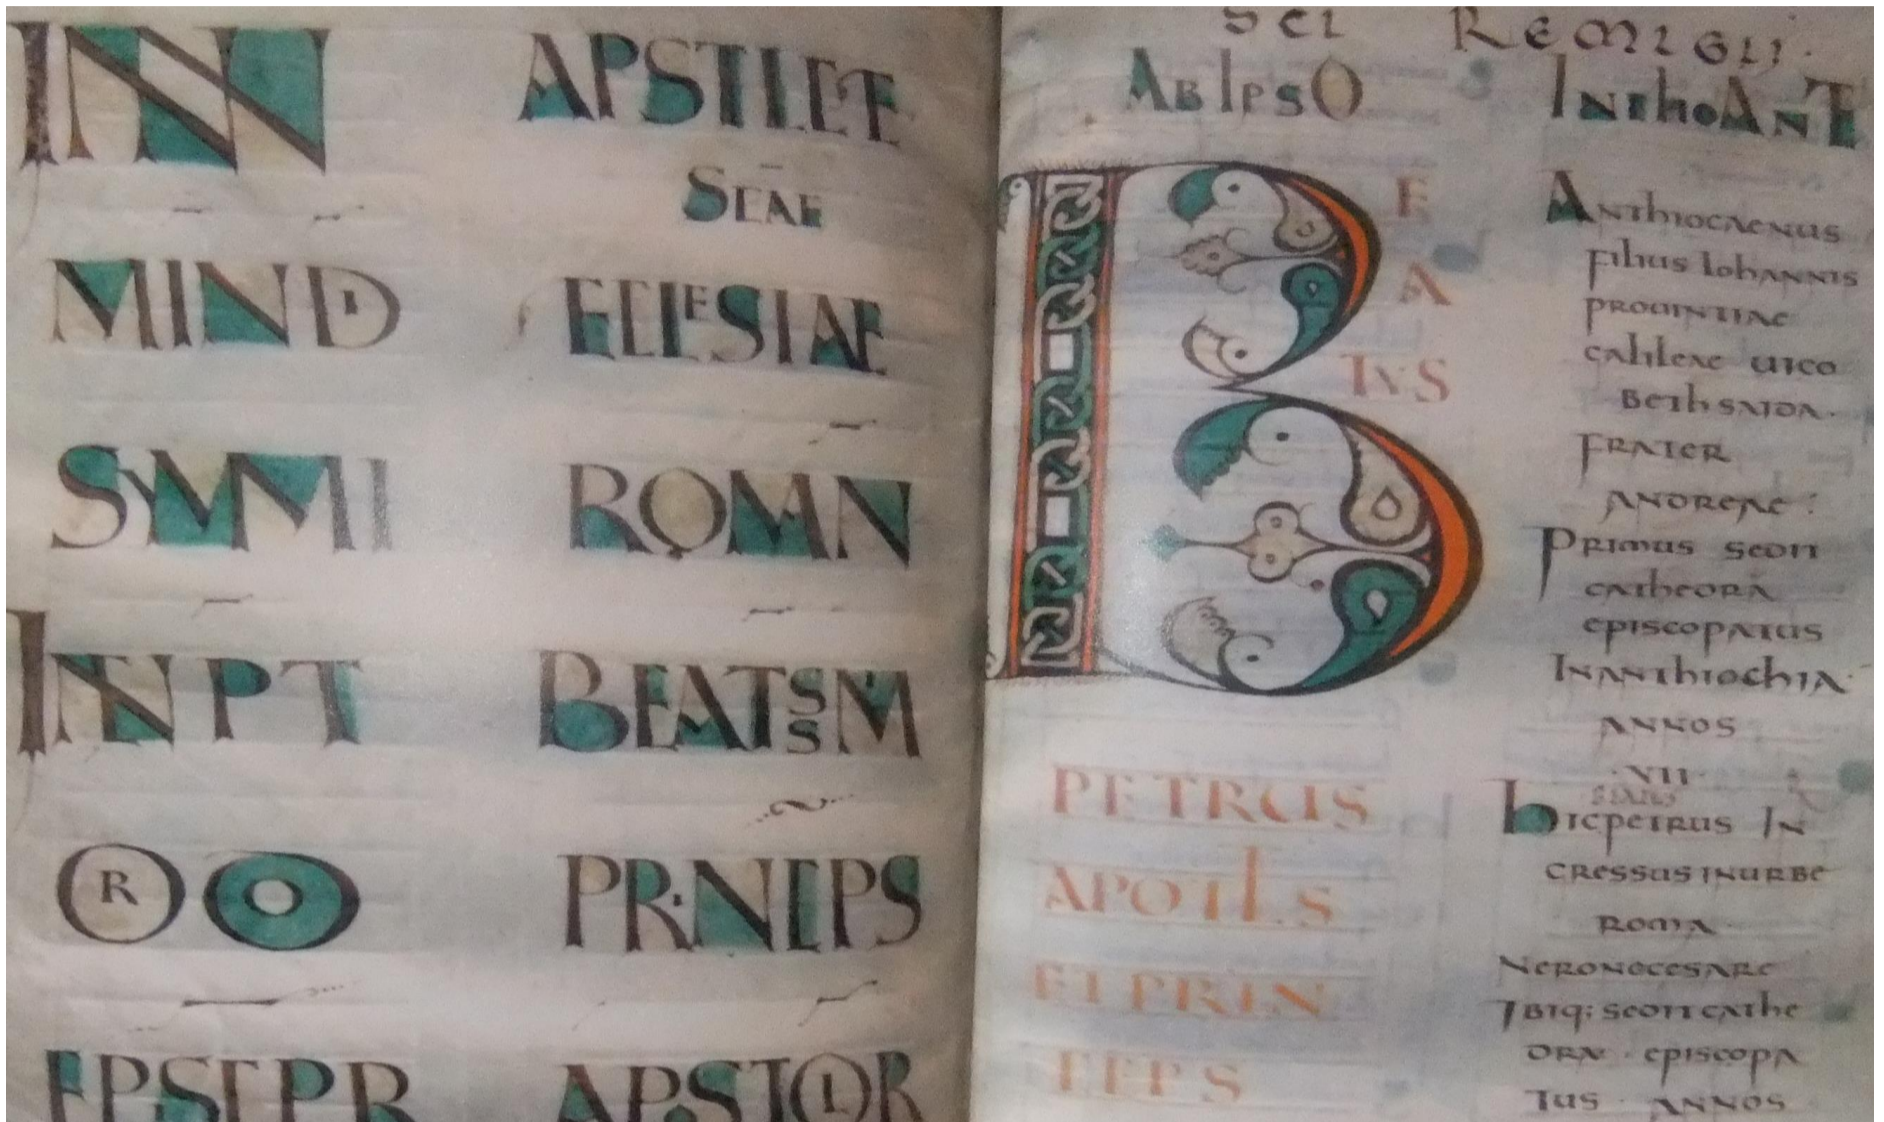 INN
MINDI
SYMMI
INNPT
RO
EPSEPR
APSTLCE
SCAE
ECLESIAE
ROMN
BEATSSM
PRINCPS
APSTOLR
SCI REMIGLI·
AB IPSO
INTHOANTE
BE
A
TVS
PETRUS
APOTLS
ETPRIN
CEPS
ANTHIOCAENUS
FILIUS IOHANNIS
PROUINTIAE
GALILEAE UICO
BETHSAIDA·
FRATER
ANDREAE:
PRIMUS SEDIT
CATHEDRA
EPISCOPATUS
INANTHIOCHIA·
ANNOS
·VII·
hICPETRUS IN
GRESSUS INURBE
ROMA
NERONECESARE
IBIQ; SEDIT CATHE
DRA · EPISCOPA
TUS · ANNOS